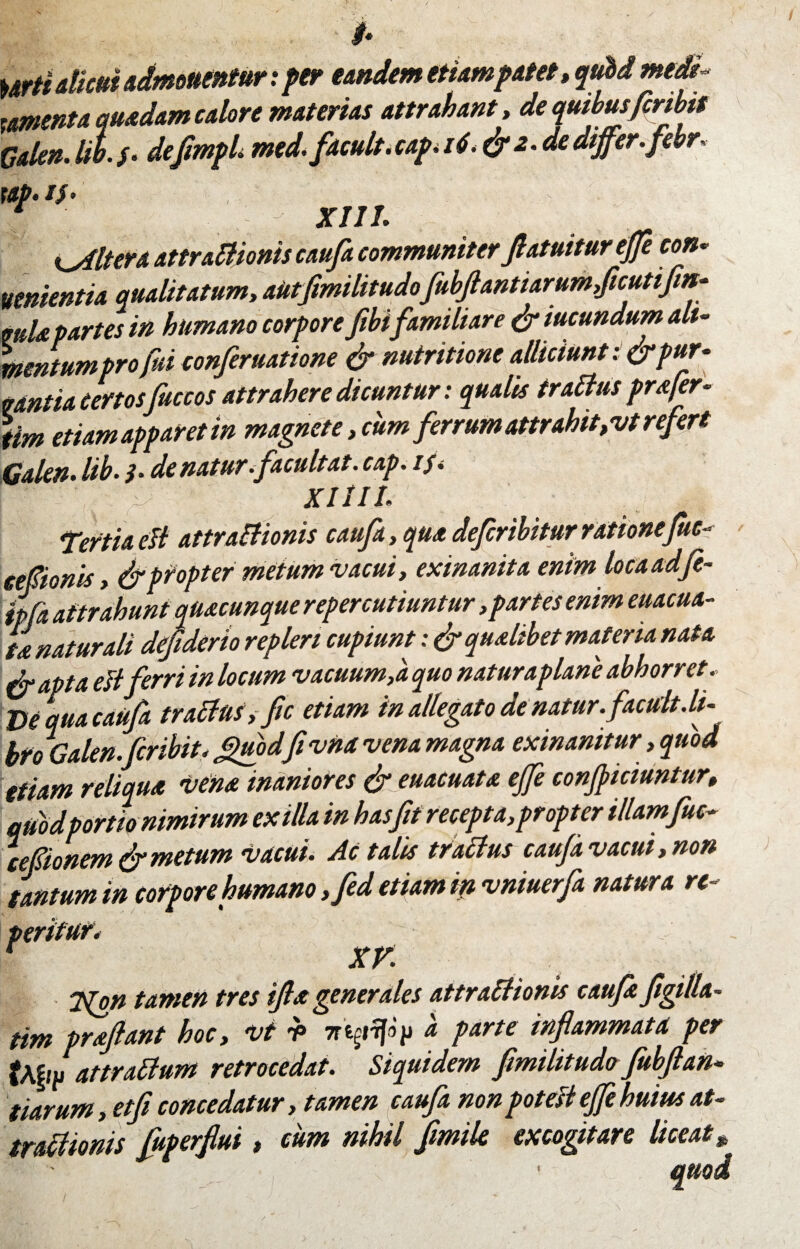 parti alicui admouentur: per eandem etiam patet, quòd medi-
camenta quædam calore materias attrahant, de quibus ſcribit
Galen. lib. 5. de ſimpl. med. facult. cap. 16. & 2. de differ. febr.
cap. 15.
XIII.
Altera attractionis cauſa communiter ſtatuitur eſſe con-
uenientia qualitatum, aut ſimilitudo ſubſtantiarum, ſicuti ſin-
gulæ partes in humano corpore ſibi familiare & iucundum ali-
mentum pro ſui conſeruatione & nutritione alliciunt: & pur-
gantia certos ſuccos attrahere dicuntur: qualis tractus præſer-
tim etiam apparet in magnete, cùm ferrum attrahit, vt refert
Galen. lib. 3. de natur. facultat. cap. 15.
XIIII.
Tertia eſt attractionis cauſa, quæ deſcribitur ratione ſuc-
ceſsionis, & propter metum vacui, exinanita enim loca ad ſe-
ipſa attrahunt quæcunque repercutiuntur, partes enim euacua-
tæ naturali deſiderio repleri cupiunt: & quælibet materia nata
& apta eſt ferri in locum vacuum, à quo natura planè abhorret.
De qua cauſa tractus, ſic etiam in allegato de natur. facult. li-
bro Galen. ſcribit. Quòd ſi vna vena magna exinanitur, quòd
etiam reliquæ venæ inaniores & euacuatæ eſſe conſpiciuntur,
quòd portio nimirum ex illa in has ſit recepta, propter illam ſuc-
ceſsionem & metum vacui. Ac talis tractus cauſa vacui, non
tantum in corpore humano, ſed etiam in vniuerſa natura re-
peritur.
XV.
Non tamen tres iſtæ generales attractionis cauſæ ſigilla-
tim præſtant hoc, vt à parte inflammata per
attractum retrocedat. Siquidem ſimilitudo ſubſtan-
tiarum, etſi concedatur, tamen cauſa non poteſt eſſe huius at-
tractionis ſuperflui, cùm nihil ſimile excogitare liceat,
quod